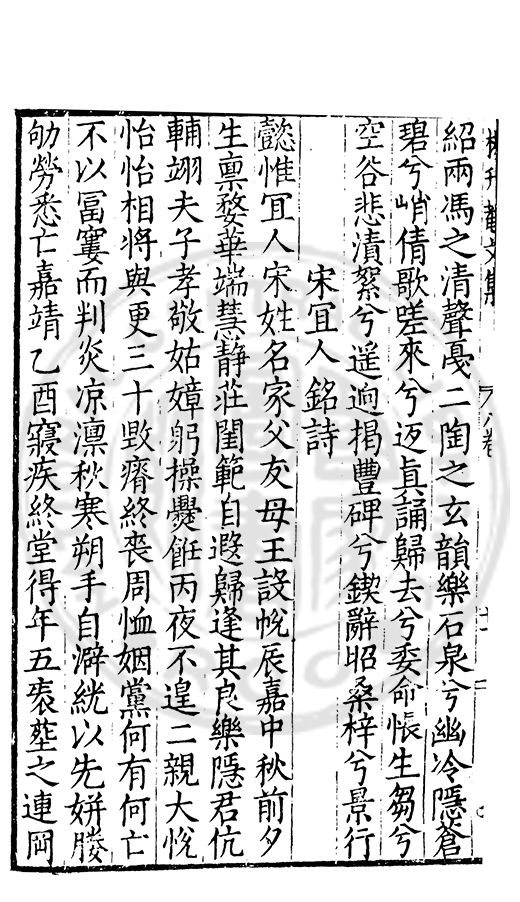 紹兩馮之清聲戞二陶之玄韻樂石泉兮幽冷隱蒼
碧兮峭倩歌嗟來兮返真誦歸去兮委命悵生芻兮
空谷悲漬絮兮遥逈揭豐碑兮鍥辭昭桑梓兮景行
宋宜人銘詩
懿惟宜人宋姓名家父友母王設帨辰嘉中秋前夕
生稟婺華端慧静莊閨範自遐歸逢其良樂隱君伉
輔翊夫子孝敬姑嫜躬操爨餁丙夜不遑二親大悅
怡怡相將與更三十斁瘠終喪周恤姻黨何有何亡
不以冨窶而判炎凉凛秋寒朔手自澼絖以先姘媵
劬勞悉亡嘉靖乙酉寢疾終堂得年五袠塟之連岡
文集
卷